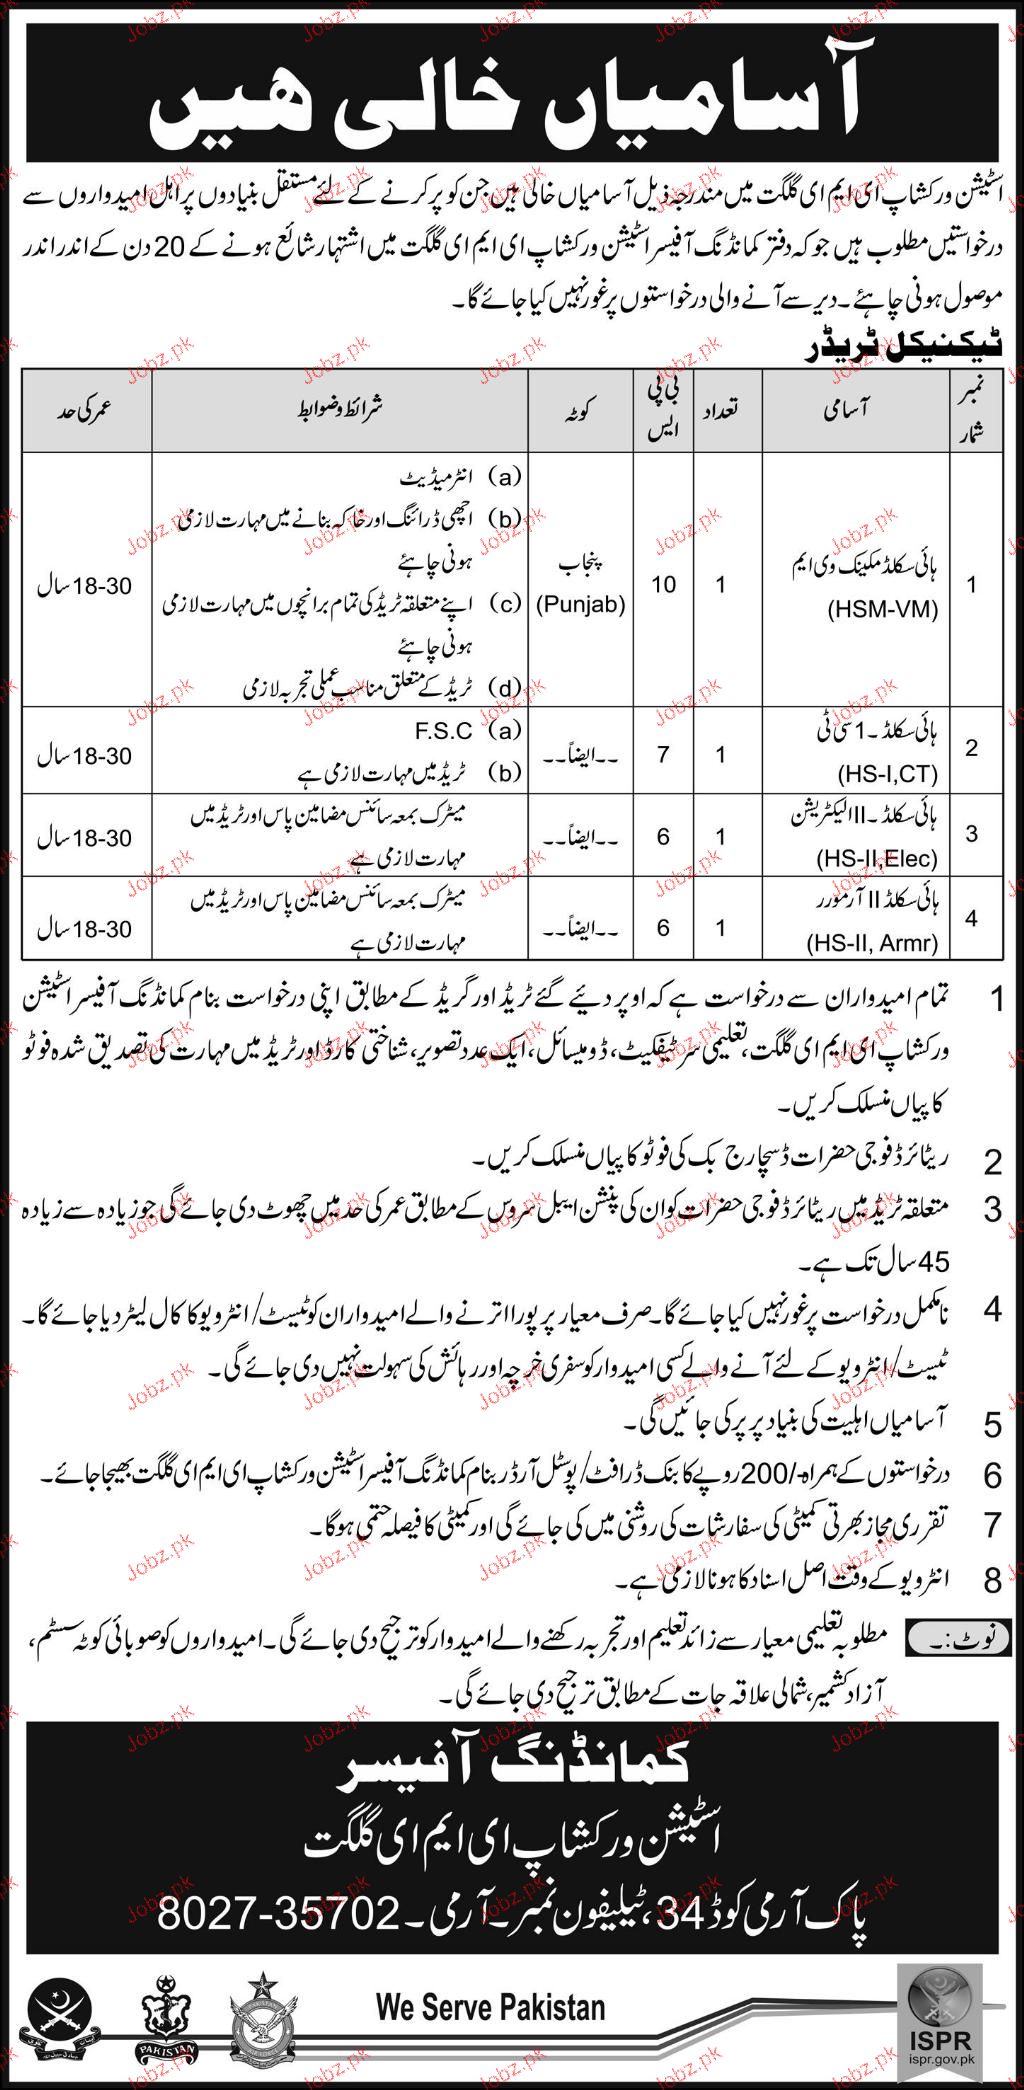 آسامیاں خالی ھیں
اسٹیشن ورکشاپ ای ایم ای گلگت میں مندرجہ ذیل آسامیاں خالی ہیں جن کو پر کرنے کے لئے مستقل بنیادوں پر اہل امیدواروں سے
درخواستیں مطلوب ہیں جو کہ دفتر کمانڈنگ آفیسر اسٹیشن ورکشاپ ای ایم ای گلگت میں اشتہار شائع ہونے کے 20 دن کے اندر اندر
موصول ہونی چاہئے۔ دیر سے آنے والی درخواستوں پر غور نہیں کیا جائے گا۔
ٹیکنیکل ٹریڈر
نمبر شمار | آسامی | تعداد | بی پی ایس | کوٹہ | شرائط و ضوابط | عمر کی حد
1 | ہائی سکلڈ مکینک وی ایم (HSM-VM) | 1 | 10 | پنجاب (Punjab) | (a) انٹرمیڈیٹ | 18-30 سال
(b) اچھی ڈرائنگ اور خاکہ بنانے میں مہارت لازمی
ہونی چاہئے
(c) اپنے متعلقہ ٹریڈ کی تمام برانچوں میں مہارت لازمی
ہونی چاہئے
(d) ٹریڈ کے متعلق مناسب عملی تجربہ لازمی
2 | ہائی سکلڈ۔1 سی ٹی (HS-I,CT) | 1 | 7 | ۔۔ایضاً۔۔ | (a) F.S.C | 18-30 سال
(b) ٹریڈ میں مہارت لازمی ہے
3 | ہائی سکلڈ۔II الیکٹریشن (HS-II,Elec) | 1 | 6 | ۔۔ایضاً۔۔ | میٹرک بمعہ سائنس مضامین پاس اور ٹریڈ میں مہارت لازمی ہے | 18-30 سال
4 | ہائی سکلڈ II آرمورر (HS-II, Armr) | 1 | 6 | ۔۔ایضاً۔۔ | میٹرک بمعہ سائنس مضامین پاس اور ٹریڈ میں مہارت لازمی ہے | 18-30 سال
1 تمام امیدواران سے درخواست ہے کہ اوپر دیئے گئے ٹریڈ اور گریڈ کے مطابق اپنی درخواست بنام کمانڈنگ آفیسر اسٹیشن
ورکشاپ ای ایم ای گلگت، تعلیمی سرٹیفکیٹ، ڈومیسائل، ایک عدد تصویر، شناختی کارڈ اور ٹریڈ میں مہارت کی تصدیق شدہ فوٹو
کاپیاں منسلک کریں۔
2 ریٹائرڈ فوجی حضرات ڈسچارج بک کی فوٹو کاپیاں منسلک کریں۔
3 متعلقہ ٹریڈ میں ریٹائرڈ فوجی حضرات کو ان کی پنشن ایبل سروس کے مطابق عمر کی حد میں چھوٹ دی جائے گی جو زیادہ سے زیادہ
45 سال تک ہے۔
4 نامکمل درخواست پر غور نہیں کیا جائے گا۔ صرف معیار پر پورا اترنے والے امیدواران کو ٹیسٹ/انٹرویو کا کال لیٹر دیا جائے گا۔
ٹیسٹ/انٹرویو کے لئے آنے والے کسی امیدوار کو سفری خرچہ اور رہائش کی سہولت نہیں دی جائے گی۔
5 آسامیاں اہلیت کی بنیاد پر پر کی جائیں گی۔
6 درخواستوں کے ہمراہ -/200 روپے کا بنک ڈرافٹ/پوسٹل آرڈر بنام کمانڈنگ آفیسر اسٹیشن ورکشاپ ای ایم ای گلگت بھیجا جائے۔
7 تقرری مجاز بھرتی کمیٹی کی سفارشات کی روشنی میں کی جائے گی اور کمیٹی کا فیصلہ حتمی ہوگا۔
8 انٹرویو کے وقت اصل اسناد کا ہونا لازمی ہے۔
نوٹ:۔ مطلوبہ تعلیمی معیار سے زائد تعلیم اور تجربہ رکھنے والے امیدوار کو ترجیح دی جائے گی۔ امیدواروں کو صوبائی کوٹہ سسٹم،
آزاد کشمیر، شمالی علاقہ جات کے مطابق ترجیح دی جائے گی۔
کمانڈنگ آفیسر
اسٹیشن ورکشاپ ای ایم ای گلگت
پاک آرمی کوڈ 34، ٹیلیفون نمبر۔ آرمی۔ 8027-35702
We Serve Pakistan
PAKISTAN
ISPR
ispr.gov.pk
Jobz.pk